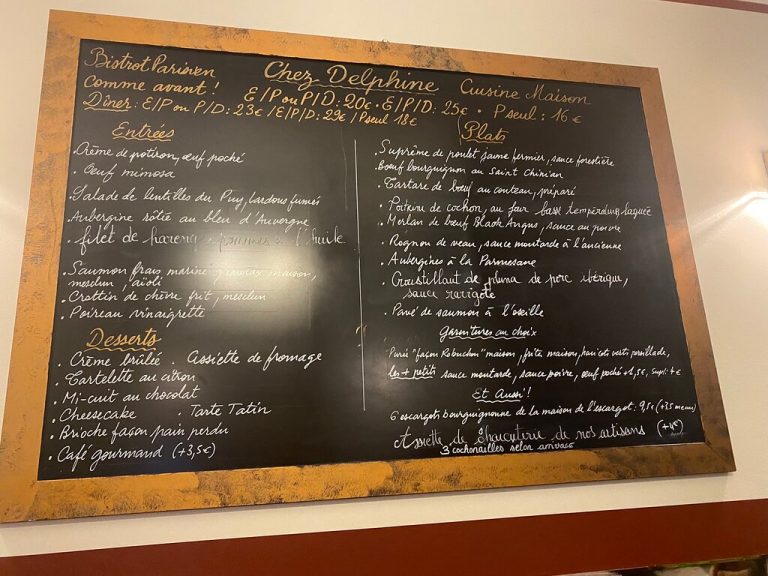 Bistrot Parisien
comme avant !
Chez Delphine Cuisine Maison
E/P ou P/D: 20€ • E/P/D: 25€ • P seul : 16 €
Dîner: E/P ou P/D: 23€ / E/P/D: 29€ / P seul 18€
Entrées
• Crème de potiron, œuf poché
• Œuf mimosa
• Salade de lentilles du Puy, lardons fumés
• Aubergine rôtie au bleu d'Auvergne
• filet de hareng, pommes à l'huile
• Saumon frais mariné gravlax maison,
mesclun, aïoli
• Crottin de chèvre frit, mesclun
• Poireau vinaigrette
Desserts
• Crème brûlée • Assiette de fromage
• Tartelette au citron
• Mi-cuit au chocolat
• Cheesecake • Tarte Tatin
• Brioche façon pain perdu
• Café gourmand (+3,5€)
Plats
• Suprême de poulet jaune fermier, sauce forestière
• Bœuf bourguignon au Saint Chinian
• Tartare de bœuf au couteau, préparé
• Poitrine de cochon, au four basse température, laquée
• Merlan de bœuf Black Angus, sauce au poivre
• Rognon de veau, sauce moutarde à l'ancienne
• Aubergines à la Parmesane
• Croustillant de pluma de porc ibérique,
sauce ravigote
• Pavé de saumon à l'oseille
Garnitures au choix
Purée "façon Robuchon" maison, frites maison, haricots verts persillade,
les + petits sauce moutarde, sauce poivre, œuf poché +1,5€,
Et Aussi !
6 escargots bourguignonne de la maison de l'escargot : 9,5€
Assiette de charcuterie de nos artisans (+4€)
3 cochonailles selon arrivage